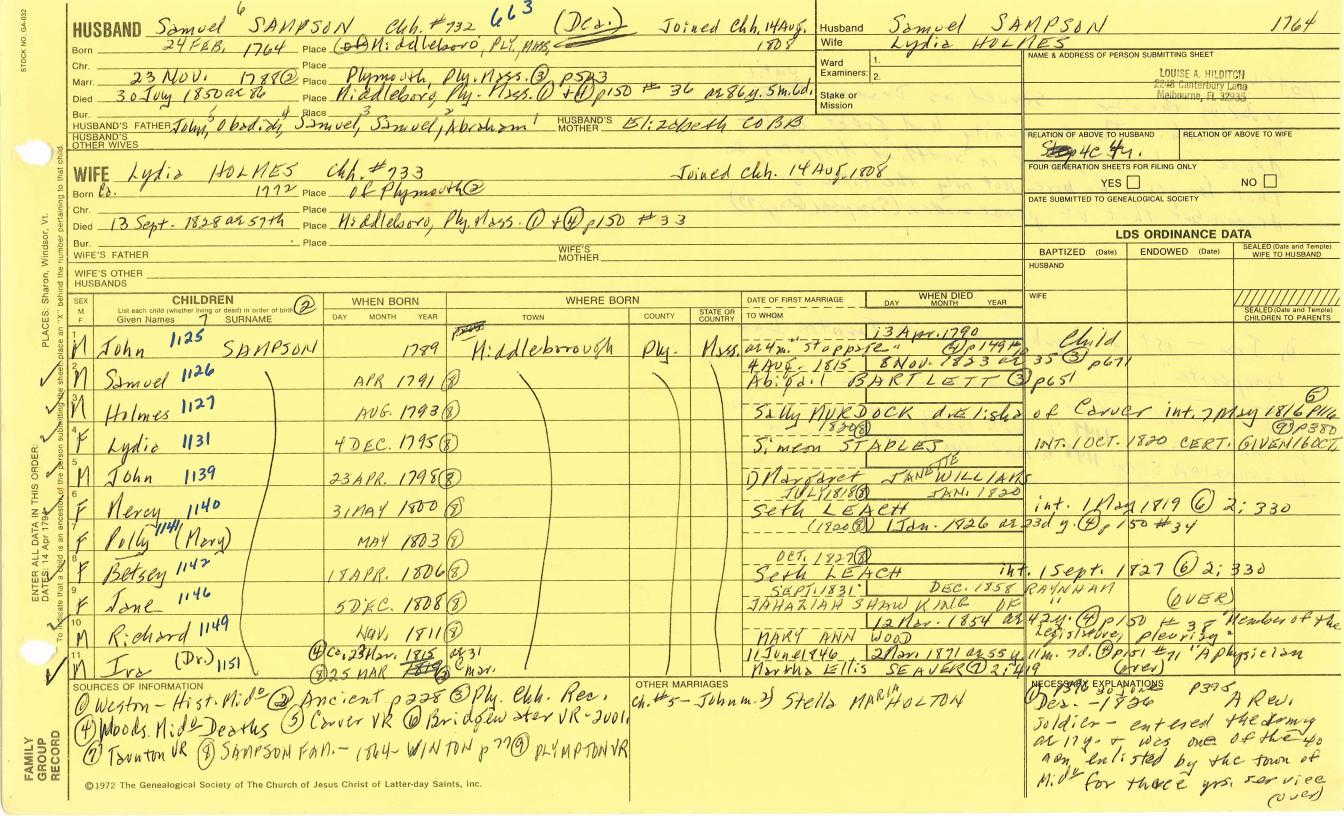 STOCK NO. GA-032
HUSBAND Samuel 6 SAMPSON Chh. #732 663 (Dea.) Joined Chh. 14 Aug. 1808
Born 24 FEB. 1764 Place Middleboro, PLY, MASS.
Chr. Place
Marr. 23 NOV. 1788 (2) Place Plymouth, Ply. Mass. (3) p523
Died 30 July 1850 ae 86 Place Middleboro, Ply. Mass. (1) + (4) p150 # 36 ae 86 y. 5 m. 6 d.
Bur. Place
HUSBAND'S FATHER John,5 Obadiah,4 Samuel,3 Samuel,2 Abraham1 HUSBAND'S MOTHER Elizabeth COBB
HUSBAND'S OTHER WIVES
Husband Samuel SAMPSON 1764
Wife Lydia HOLMES
Ward Examiners: 1.
2.
Stake or Mission
NAME & ADDRESS OF PERSON SUBMITTING SHEET
LOUISE A. HILDITCH
2248 Canterbury Lane
Melbourne, FL 32935
RELATION OF ABOVE TO HUSBAND RELATION OF ABOVE TO WIFE
FOUR GENERATION SHEETS FOR FILING ONLY
YES NO
DATE SUBMITTED TO GENEALOGICAL SOCIETY
WIFE Lydia HOLMES Chh. #733 Joined Chh. 14 Aug, 1808
Born Ca. 1772 Place of Plymouth (2)
Chr. Place
Died 13 Sept. 1828 ae 57th Place Middleboro, Ply. Mass. (1) + (4) p150 #33
Bur. Place
WIFE'S FATHER WIFE'S MOTHER
WIFE'S OTHER HUSBANDS
LDS ORDINANCE DATA
BAPTIZED (Date) ENDOWED (Date) SEALED (Date and Temple) WIFE TO HUSBAND
HUSBAND
WIFE
SEALED (Date and Temple) CHILDREN TO PARENTS
SEX M F CHILDREN (2) List each child (whether living or dead) in order of birth Given Names 7 SURNAME
WHEN BORN DAY MONTH YEAR
WHERE BORN TOWN COUNTY STATE OR COUNTRY
DATE OF FIRST MARRIAGE TO WHOM
WHEN DIED DAY MONTH YEAR
1 M John 1125 SAMPSON 1789 Middleborough Ply. Mass. 13 Apr. 1790 ae 4 m. "stoppage" (4) p149 Child
2 M Samuel 1126 APR 1791 (8) 4 AUG. 1815 8 NOV. 1823 ae 35 (3) p671
Abigail BARTLETT (3) p651
3 M Holmes 1127 AUG. 1793 (8) Sally MURDOCK d. Elisha of Carver int. 7 May 1816 (5) p116
4 F Lydia 1131 4 DEC. 1795 (8) 1820 (8) (9) p380
Simeon STAPLES INT. 1 OCT. 1820 CERT. GIVEN 16 OCT.
5 M John 1139 23 APR. 1798 (8) 1) Margaret JANETTE WILLIAMS
6 F Mercy 1140 31 MAY 1800 (8) JULY 1818 (8) JAN. 1820
Seth LEACH int. 1 May 1819 (6) 2; 330
7 F Polly 1141 (Mary) MAY 1803 (8) (1820 (8)) 1 Jan. 1826 ae 23d y. (4) p150 #34
8 F Betsey 1142 18 APR. 1806 (8) OCT. 1827 (8)
Seth LEACH int. 1 Sept. 1827 (6) 2; 330
9 F Jane 1146 5 DEC. 1808 (8) SEPT. 1831 DEC. 1858
JAHAZIAH SHAW KING OF RAYNHAM (OVER)
10 M Richard 1149 NOV. 1811 (8) 12 Mar. 1854 ae 42 y. (4) p150 #38 "Member of the Legislature, pleurisy"
MARY ANN WOOD
11 M Ira (Dr.) 1151 (4) Ca. 23 Mar. 1815
(8) 25 MAR
11 June 1846 2 Mar. 1871 ae 55 y. 11 m. 7 d. (4) p151 #71 "A physician
Martha Ellis SEAVER (7) 2; 419 (over)
SOURCES OF INFORMATION
(1) Weston - Hist. Mido (2) Ancient p228 (3) Ply. Chh. Rec.
(4) Woods. Mido Deaths (5) Carver VR (6) Bridgewater VR-2001
(7) Taunton VR (8) SAMPSON FAM. - 1864 - WINTON p77 (9) PLYMPTON VR
OTHER MARRIAGES
Ch. #5 - John m. 2) Stella MARIA HOLTON
NECESSARY EXPLANATIONS
Dea. - 1826 p395 A Rev.
soldier - entered the army
ae 17 y. + was one of the 40
men enlisted by the town of
Mido for three yrs. service
(over)
©1972 The Genealogical Society of The Church of Jesus Christ of Latter-day Saints, Inc.
FAMILY GROUP RECORD
ENTER ALL DATA IN THIS ORDER:
DATES: 14 Apr 1794
PLACES: Sharon, Windsor, Vt.
To indicate that a child is an ancestor of the person submitting the sheet place an "X" behind the number pertaining to that child.